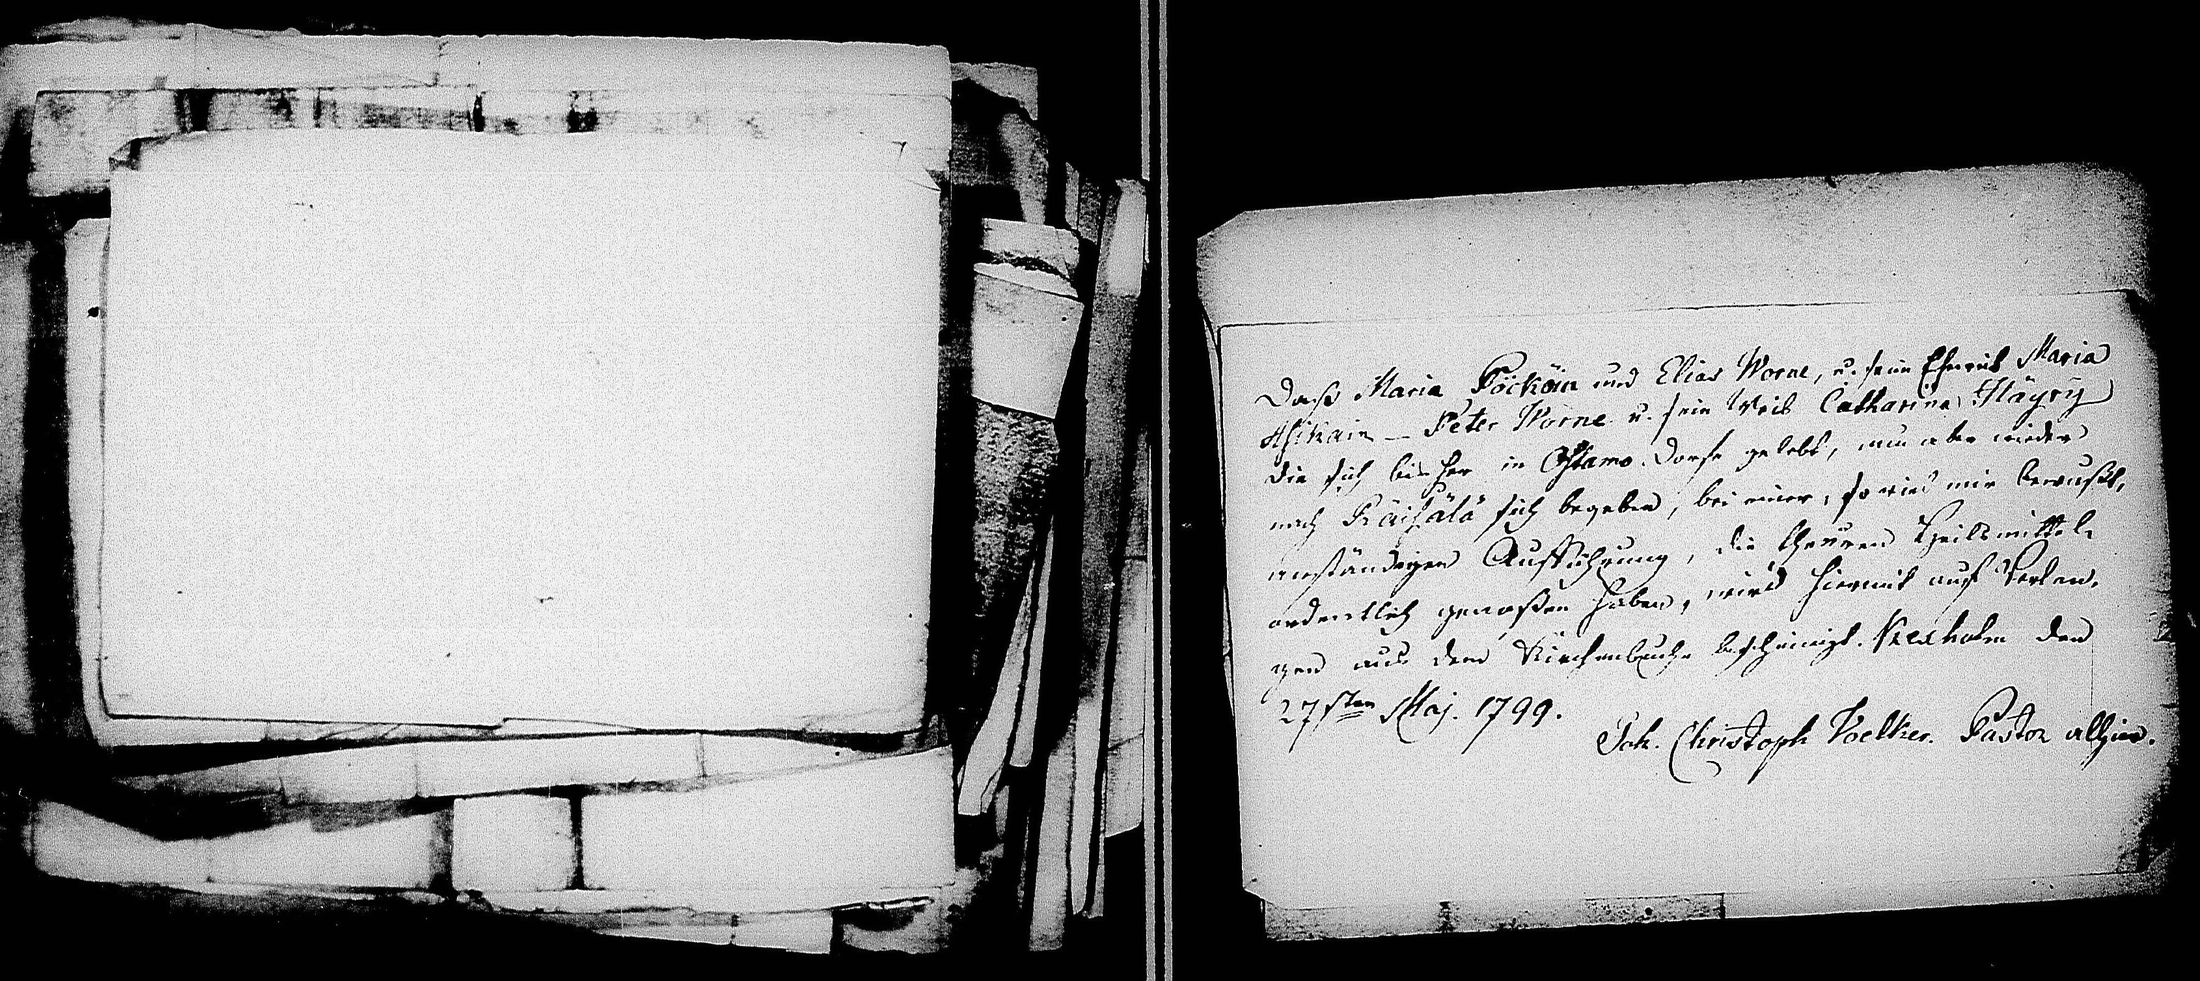 Daß Maria Pöcköin und Elias Worne, u. sein Eheweib Maria
Asikain – Peter Worne u. sein Weib Catharina Häyry
die sich bisher in Ostamo-Dorfe gelebt, nun aber wieder
nach Räisälä sich begeben, bei einer, so viel mir bewußt,
anständigen Aufführung, die theuren Heilsmittel
ordentlich genoßen haben, wird hiermit auf Verlan-
gen aus dem Kirchenbuche bescheinigt. Kexholm den
27sten Maj. 1799.
Joh. Christoph Voelker. Pastor allhier.